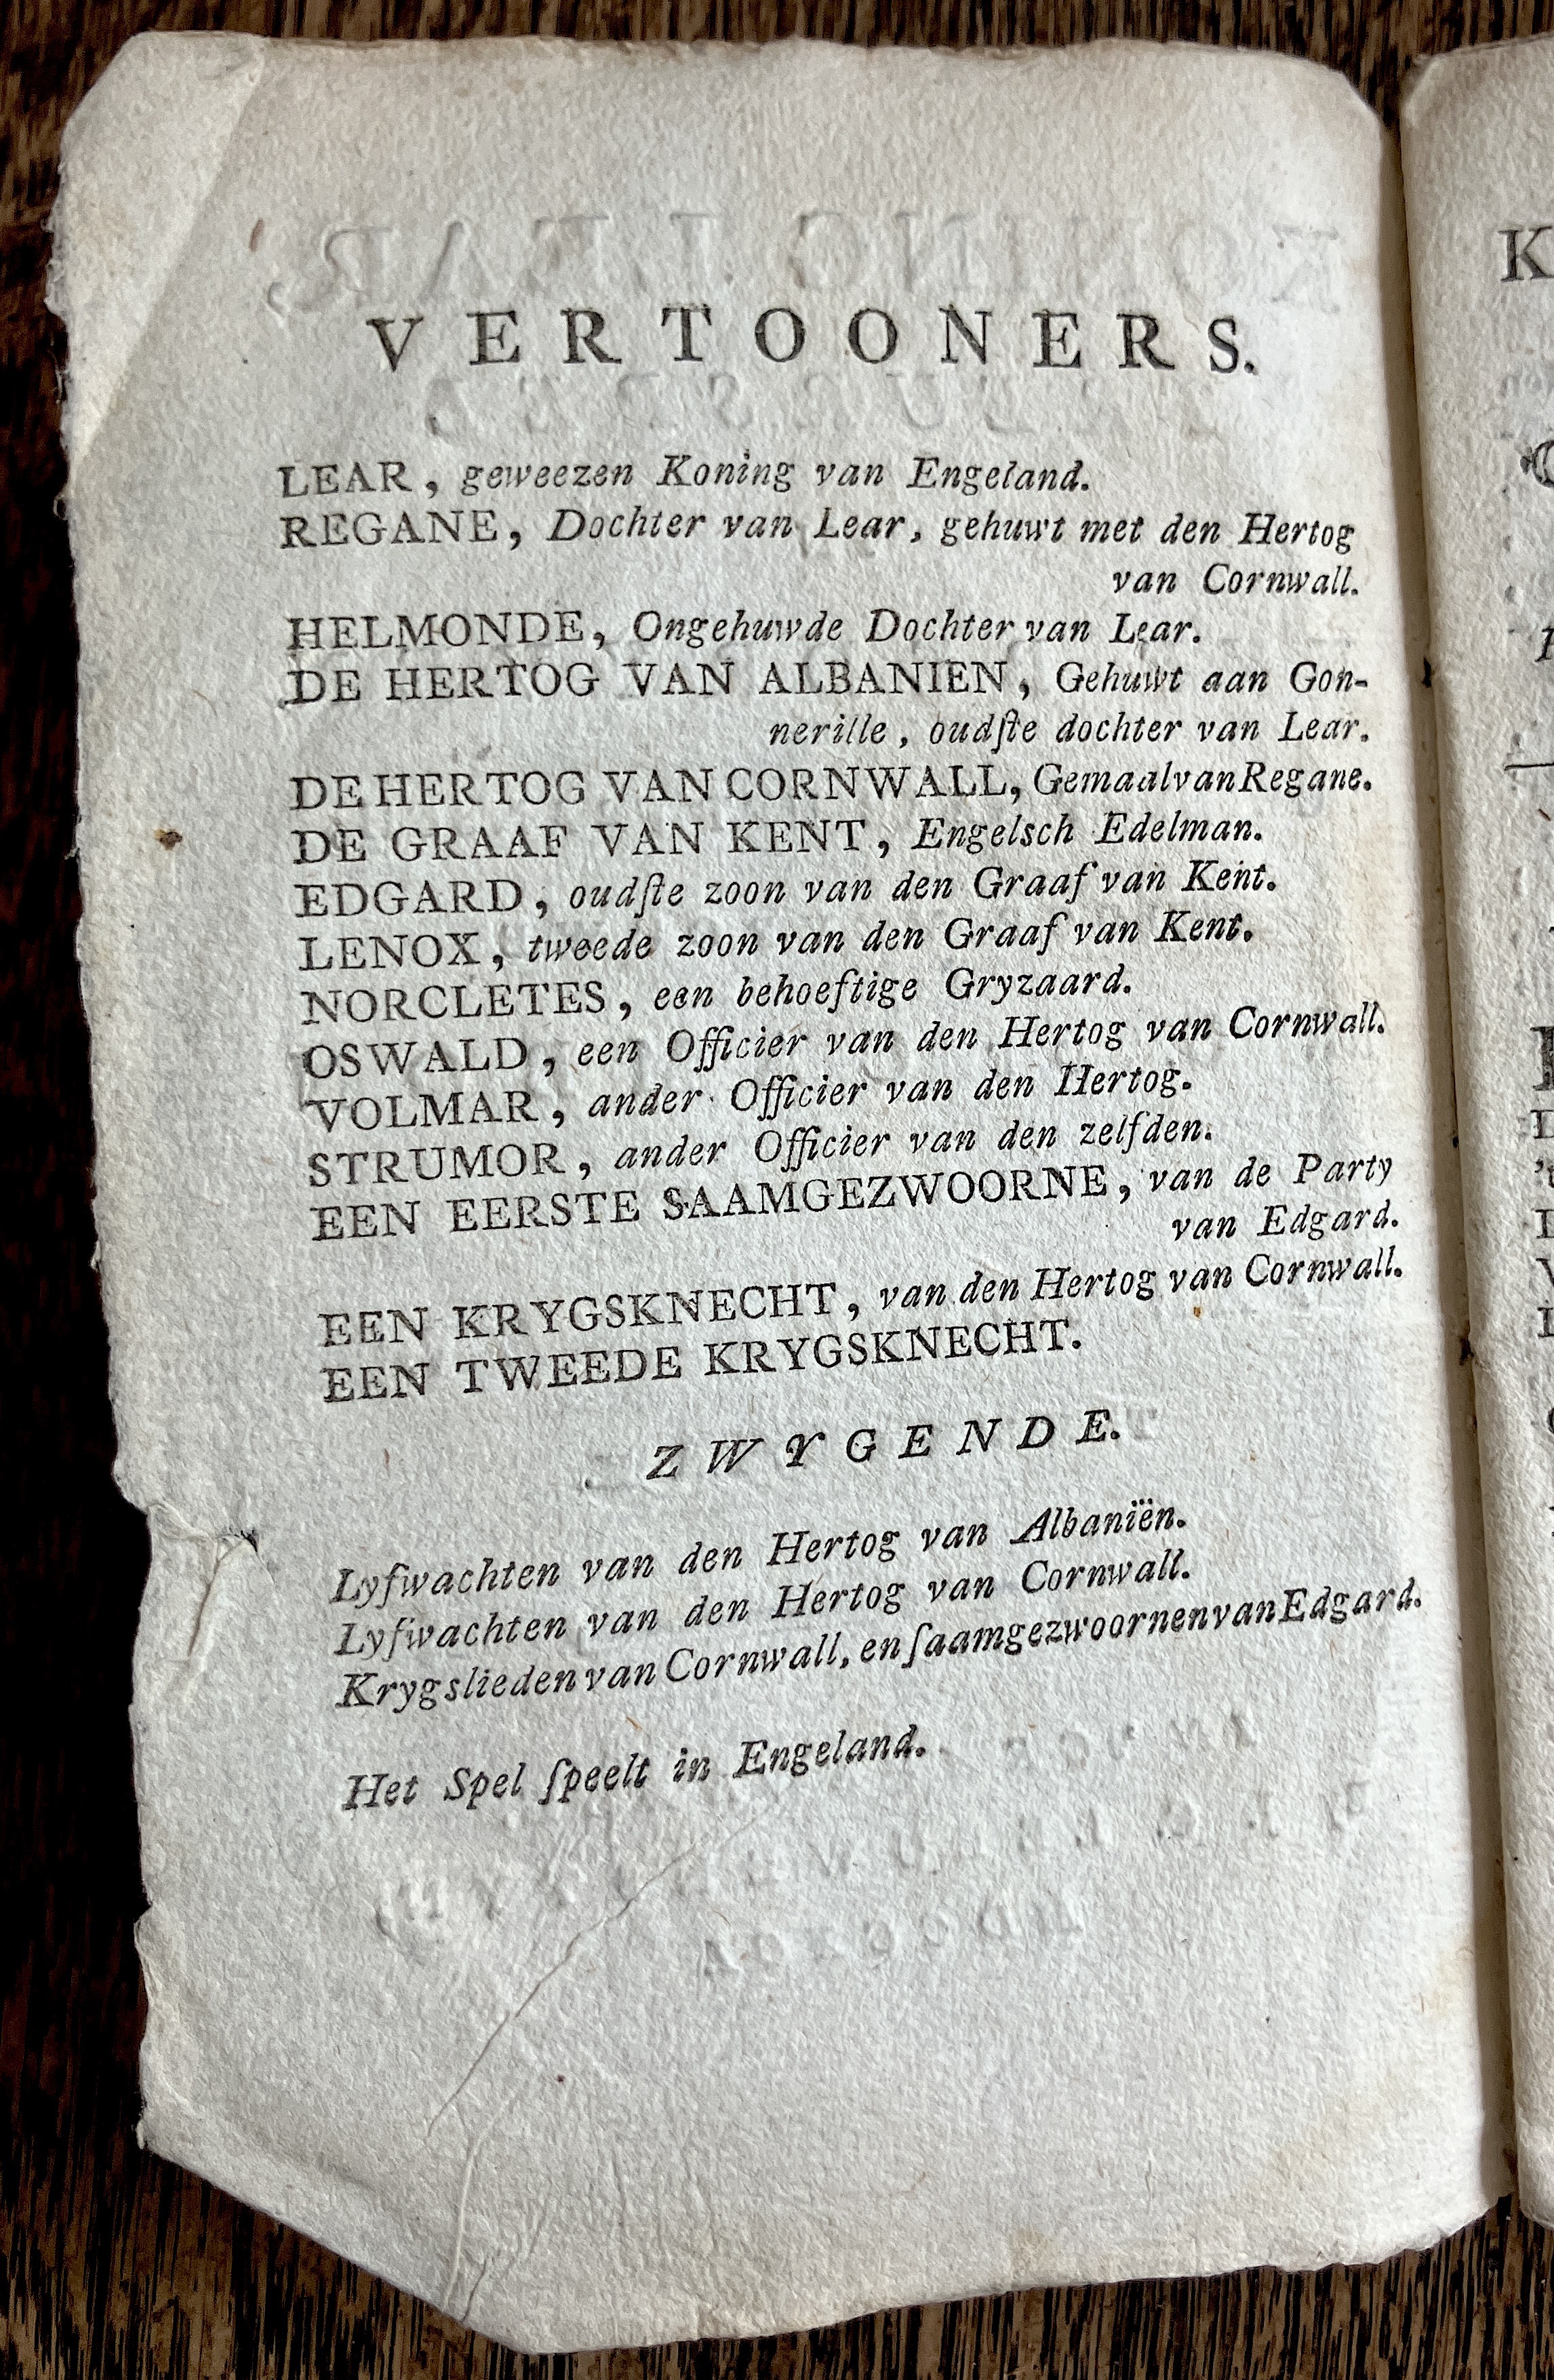 VERTOONERS.
LEAR, geweezen Koning van Engeland.
REGANE, Dochter van Lear, gehuwt met den Hertog
van Cornwall.
HELMONDE, Ongehuwde Dochter van Lear.
DE HERTOG VAN ALBANIEN, Gehuwt aan Gon-
nerille, oudſte dochter van Lear.
DE HERTOG VAN CORNWALL, Gemaal van Regane.
DE GRAAF VAN KENT, Engelsch Edelman.
EDGARD, oudſte zoon van den Graaf van Kent.
LENOX, tweede zoon van den Graaf van Kent.
NORCLETES, een behoeftige Gryzaard.
OSWALD, een Officier van den Hertog van Cornwall.
VOLMAR, ander Officier van den Hertog.
STRUMOR, ander Officier van den zelfden.
EEN EERSTE SAAMGEZWOORNE, van de Party
van Edgard.
EEN KRYGSKNECHT, van den Hertog van Cornwall.
EEN TWEEDE KRYGSKNECHT.
ZWYGENDE.
Lyfwachten van den Hertog van Albaniën.
Lyfwachten van den Hertog van Cornwall.
Krygslieden van Cornwall, en ſaamgezwoornen van Edgard.
Het Spel ſpeelt in Engeland.